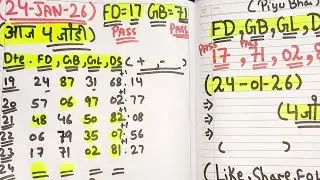 (24-JAN-26) FD=17 GB=71
PASS PASS
(आज 4 जोड़ी)
Dte. FD, GB, GL, DS (+ -)
19 24 87 31 68 .14
20 57 06 97 02 .77
21 48 46 50 82 .08
22 06 79 35 07 .56
23 17 71 02 81 .27
24
(Piyu Bhai)
FD, GB, GL, DS
PASS PASS
17, 71, 02, 8
(24-01-26)
(4 जोड़ी
( )
(Like, Share, Fol